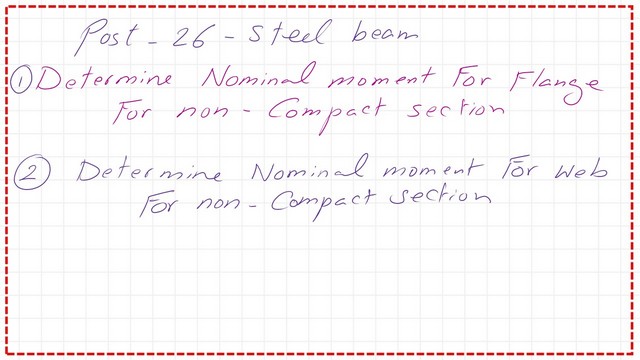 Post - 26 - Steel beam
① Determine Nominal moment For Flange
For non - Compact section
② Determine Nominal moment For web
For non - Compact section